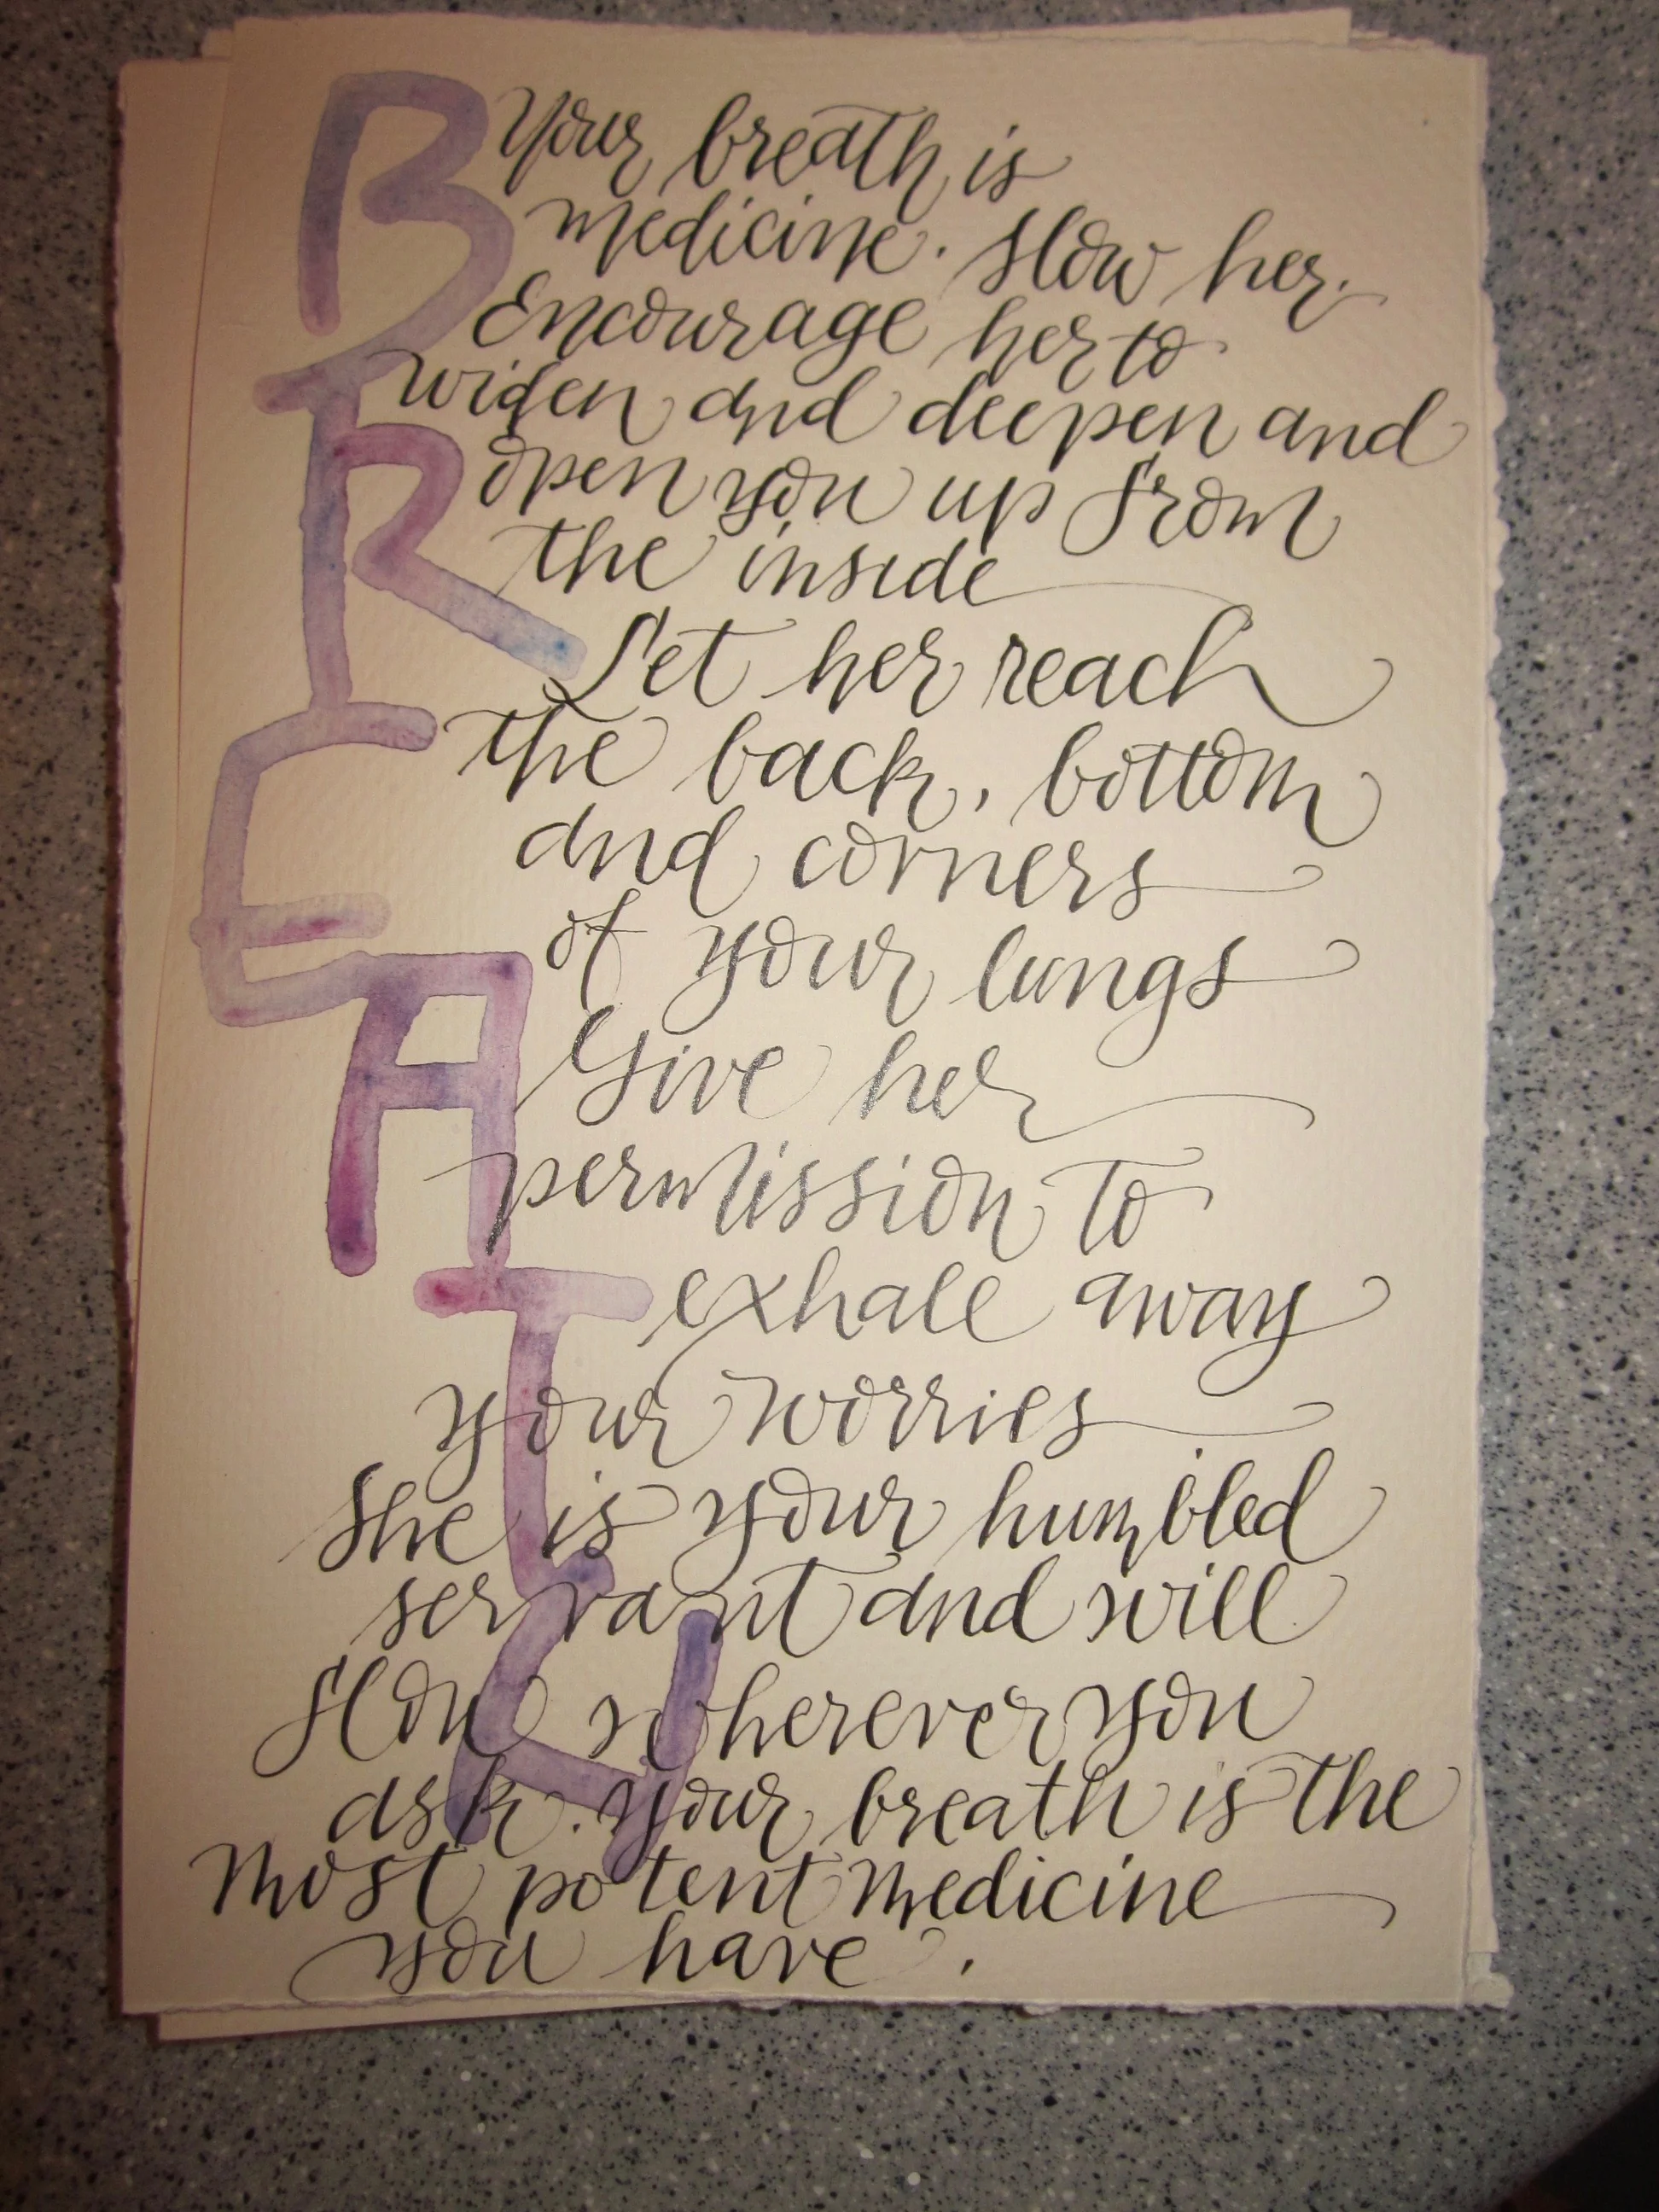 BREATH
Your breath is
medicine. Slow her.
Encourage her to
widen and deepen and
open you up from
the inside
Let her reach
the back, bottom
and corners
of your lungs
Give her
permission to
exhale away
your worries
She is your humbled
servant and will
flow wherever you
ask. Your breath is the
most potent medicine
you have.